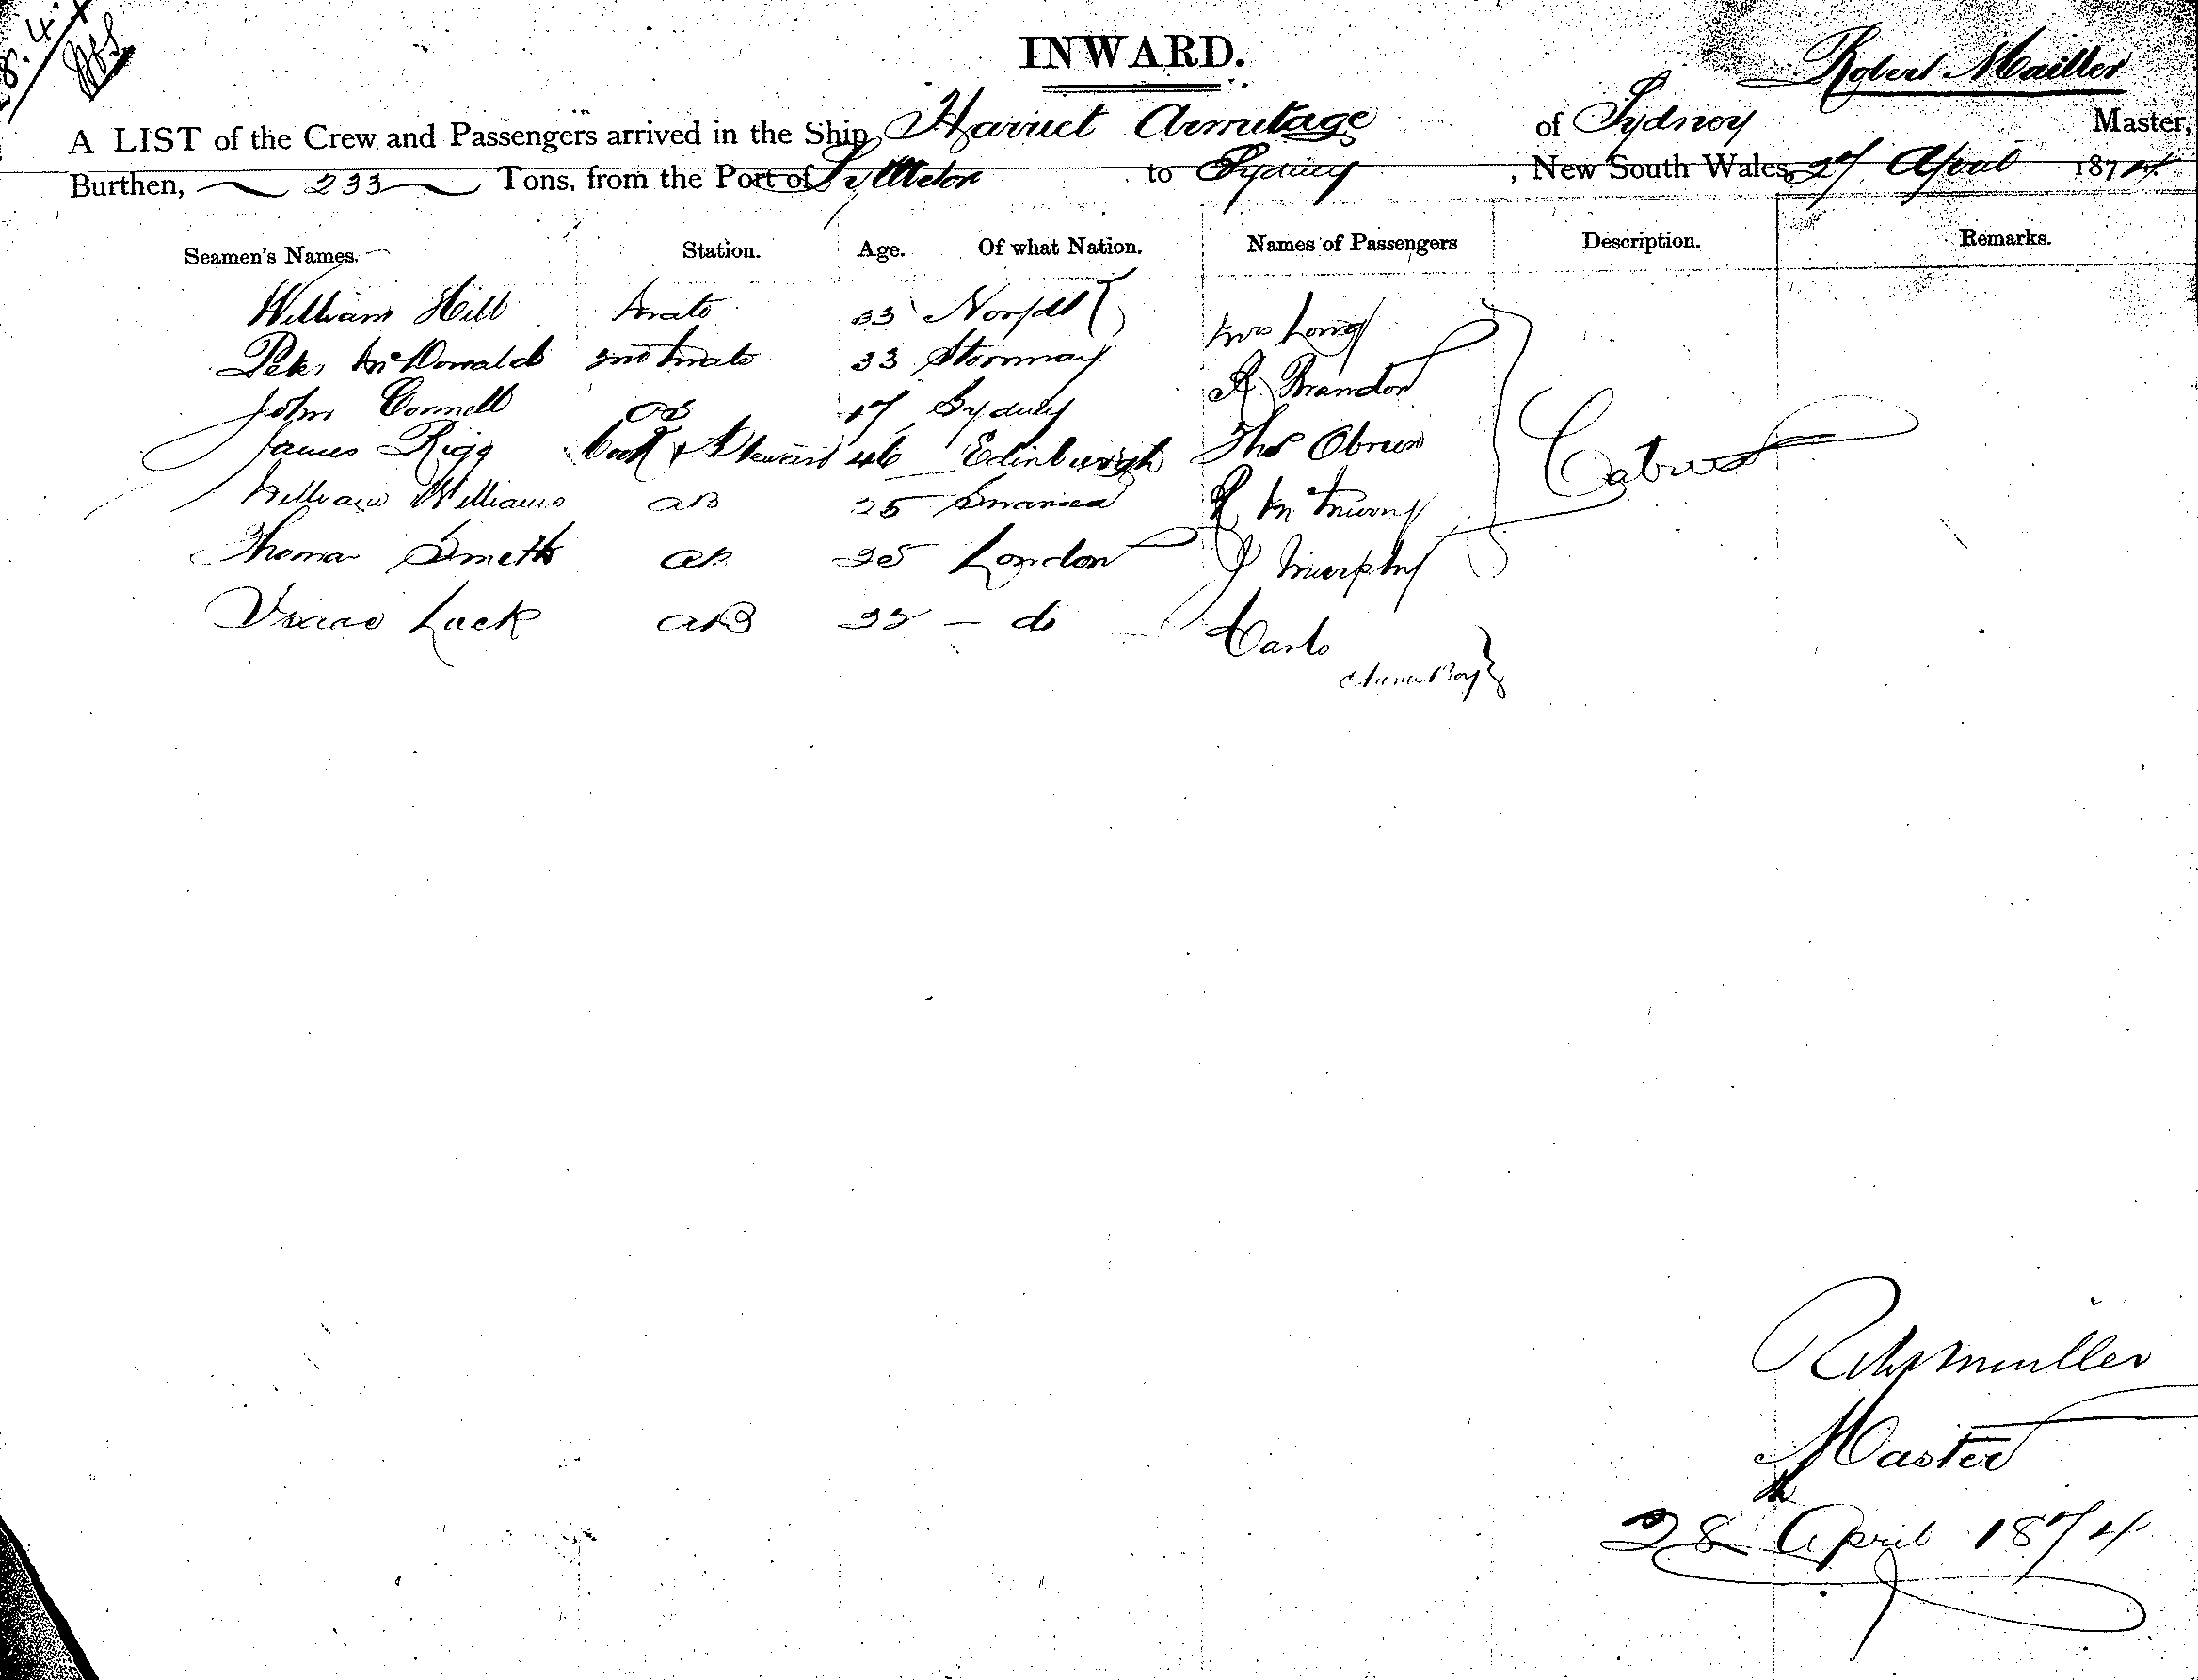 28.4.
INWARD.
Robert Mailler
A LIST of the Crew and Passengers arrived in the Ship Harriet Armitage of Sydney Master,
Burthen, 233 Tons, from the Port of Lyttleton to Sydney, New South Wales, 27 April 1874
Seamen's Names. Station. Age. Of what Nation. Names of Passengers Description. Remarks.
William Hill Mate 33 Norfolk Mrs Long
Peter McDonald 2nd Mate 33 Stornway R Brandon
John Connell OS 17 Sydney
James Rigg Cook & Steward 46 Edinburgh Thos Obrien
William Williams AB 25 Swansea R Mc
Thomas Smith AB 25 London J Murphy
Isaac Luck AB 22 - do Carlo
Boy
Master
28 April 1874